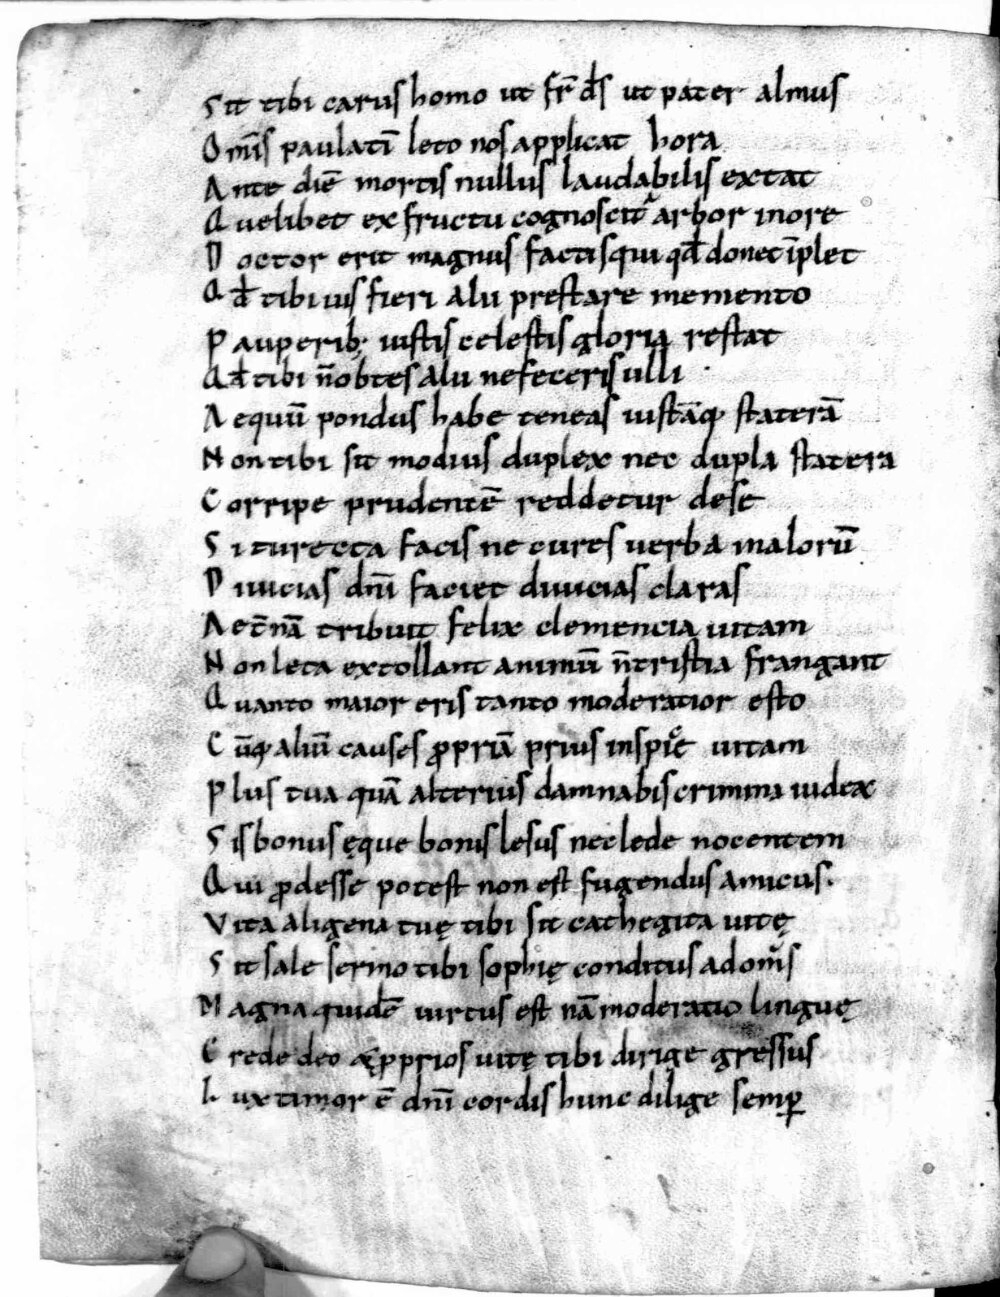 Sit tibi carus homo ut fr̄ d̄s ut pater almus
Om̄is paulatī leto nos applicat hora
Ante diē mortis nullus laudabilis extat
Quelibet ex fructu cognoscit᷑ arbor in ore
Doctor erit magnus factis qui qđ donec īplet
Qđ tibi uis fieri alii prestare memento
Pauperib; iustis celestis gloria restat
Qđ tibi n̄ obtes alii ne feceris ulli
Aequū pondus habe teneas iustāq; staterā
Non tibi sit modius duplex nec dupla statera
Corripe prudentē reddetur de se
Si tu recta facis ne cures uerba malorū
Diuicias dn̄i faciet diuicias claras
Aet̄nā tribuit felix clemencia uitam
Non leta extollant animū n̄ tristia frangant
Quanto maior eris tanto moderatior esto
Cū̄q; aliū causes ꝓpriā prius inspice uitam
Plus tua quā alterius damnabis crimina iudex
Sis bonus ęque bonis lesus nec lede nocentem
Qui ꝓdesse potest non est fugendus amicus.
Vita aligena tuę tibi sit cathegita uitę
Sit sale sermo tibi sophię conditus ad om̄s
Magna quidē uirtus est nā moderatio linguę
Crede deo ꝓprios uitę tibi dirige gressus
Lux timor ē dn̄i cordis hunc dilige semꝑ